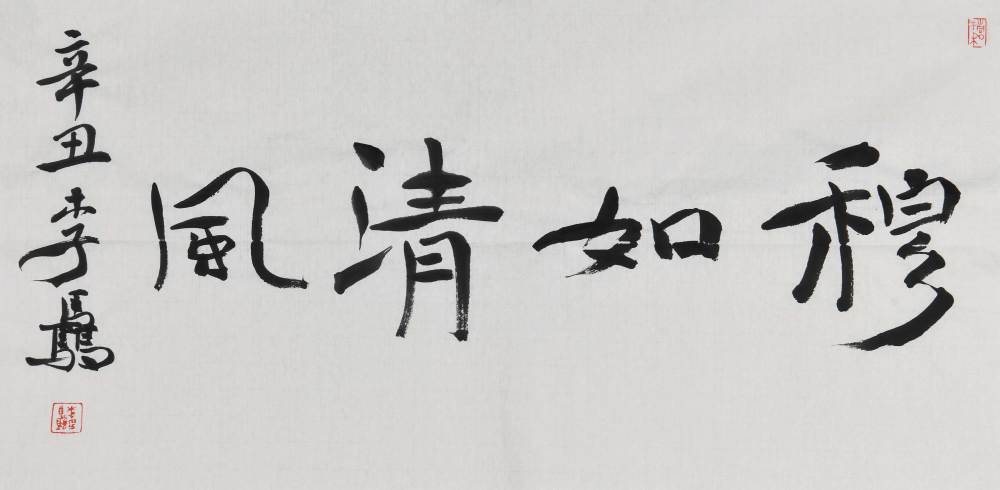 穆如清風
辛丑李驫